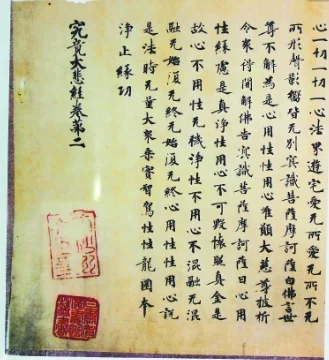 心一切一切一心法界遊宅愛无所愛无所不无
所形聲影嚮皆无別冥識菩薩摩訶薩白佛言世
尊不解為是心性性用心唯願大慈尊披析
令衆得開解佛告冥識菩薩摩訶薩曰心用
性緣慮是真淨性用心不可毀懷照真金是
故心不用性无穢淨性不用心不混融无混
融无始復无終无始復无終心用性性用心說
是法時无量大衆乘實智駕性性龍國奉
淨止緣功
究竟大悲經卷第二